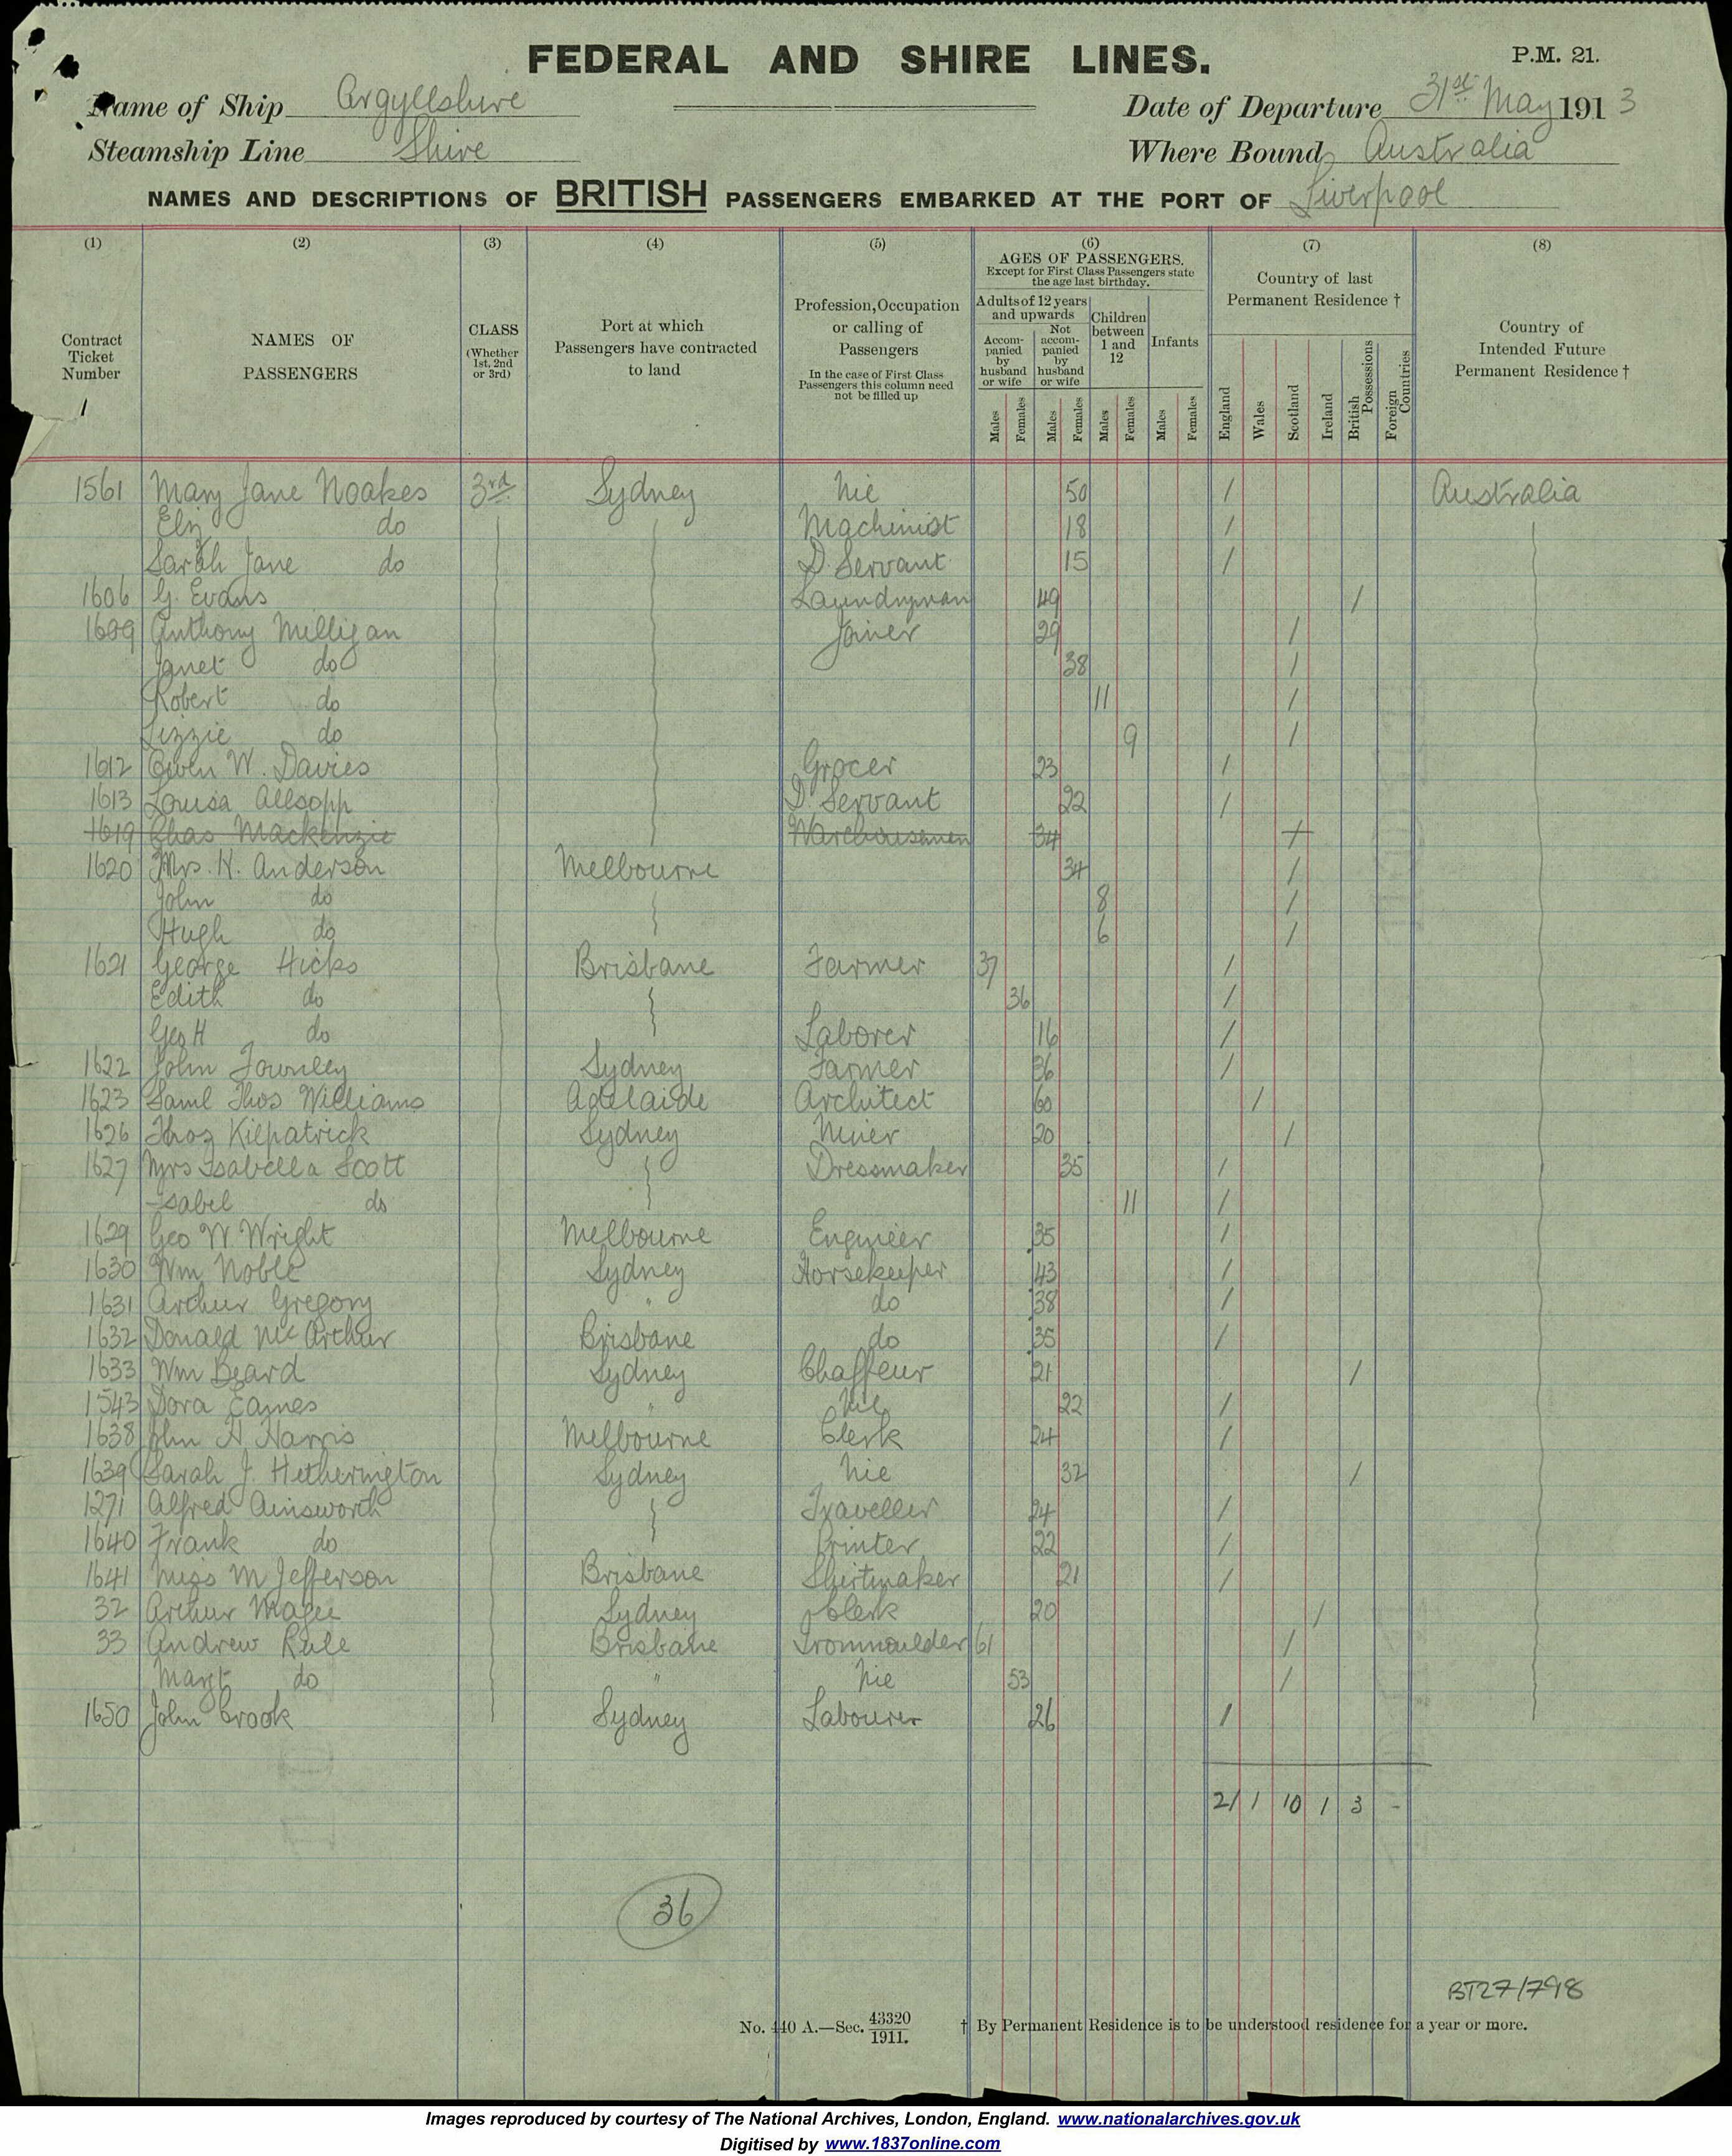 FEDERAL AND SHIRE LINES.
P.M. 21.
Name of Ship Argyllshire
Date of Departure 31st May 1913
Steamship Line Shire
Where Bound Australia
NAMES AND DESCRIPTIONS OF BRITISH PASSENGERS EMBARKED AT THE PORT OF Liverpool
(1) (2) (3) (4) (5) (6) (7) (8)
Contract Ticket Number
1
NAMES OF PASSENGERS
CLASS
(Whether 1st, 2nd or 3rd)
Port at which Passengers have contracted to land
Profession, Occupation or calling of Passengers
In the case of First Class Passengers this column need not be filled up
AGES OF PASSENGERS.
Except for First Class Passengers state the age last birthday.
Adults of 12 years and upwards
Accompanied by husband or wife
Not accompanied by husband or wife
Children between 1 and 12
Infants
Males Females Males Females Males Females Males Females
Country of last Permanent Residence †
England Wales Scotland Ireland British Possessions Foreign Countries
Country of Intended Future Permanent Residence †
1561 Mary Jane Noakes 3rd Sydney Nie 50 / Australia
Eliz do Machinist 18 /
Sarah Jane do D. Servant 15 /
1606 G. Evans Laundryman 49 /
1609 Anthony Milligan Joiner 29 /
Janet do 38 /
Robert do 11 /
Lizzie do 9 /
1612 Owen W. Davies Grocer 23 /
1613 Louisa Allsopp D. Servant 22 /
1619 Chas Mackenzie Warehouseman 34 /
1620 Mrs. H. Anderson Melbourne 34 /
John do 8 /
Hugh do 6 /
1621 George Hicks Brisbane Farmer 37 /
Edith do 36 /
Geo H do Laborer 16 /
1622 John Townley Sydney Farmer 36 /
1623 Saml Thos Williams Adelaide Architect 60 /
1626 Thos Kilpatrick Sydney Miner 20 /
1627 Mrs Isabella Scott Dressmaker 35 /
Isabel do 11 /
1629 Geo W Wright Melbourne Engineer 35 /
1630 Wm Noble Sydney Horsekeeper 43 /
1631 Arthur Gregory " do 38 /
1632 Donald McArthur Brisbane do 35 /
1633 Wm Beard Sydney Chaffeur 21 /
1543 Dora Eames " Nie 22 /
1638 John H Harris Melbourne Clerk 24 /
1639 Sarah J. Hetherington Sydney Nie 32 /
1271 Alfred Ainsworth Traveller 24 /
1640 Frank do Printer 22 /
1641 Miss M Jefferson Brisbane Shirtmaker 21 /
32 Arthur Magee Sydney Clerk 20 /
33 Andrew Rule Brisbane Ironmoulder 61 /
Margt do " Nie 53 /
1650 John Crook Sydney Labourer 26 /
21 1 10 1 3 -
36
BT27/798
No. 440 A.—Sec. 43320/1911.
† By Permanent Residence is to be understood residence for a year or more.
Images reproduced by courtesy of The National Archives, London, England. www.nationalarchives.gov.uk
Digitised by www.1837online.com